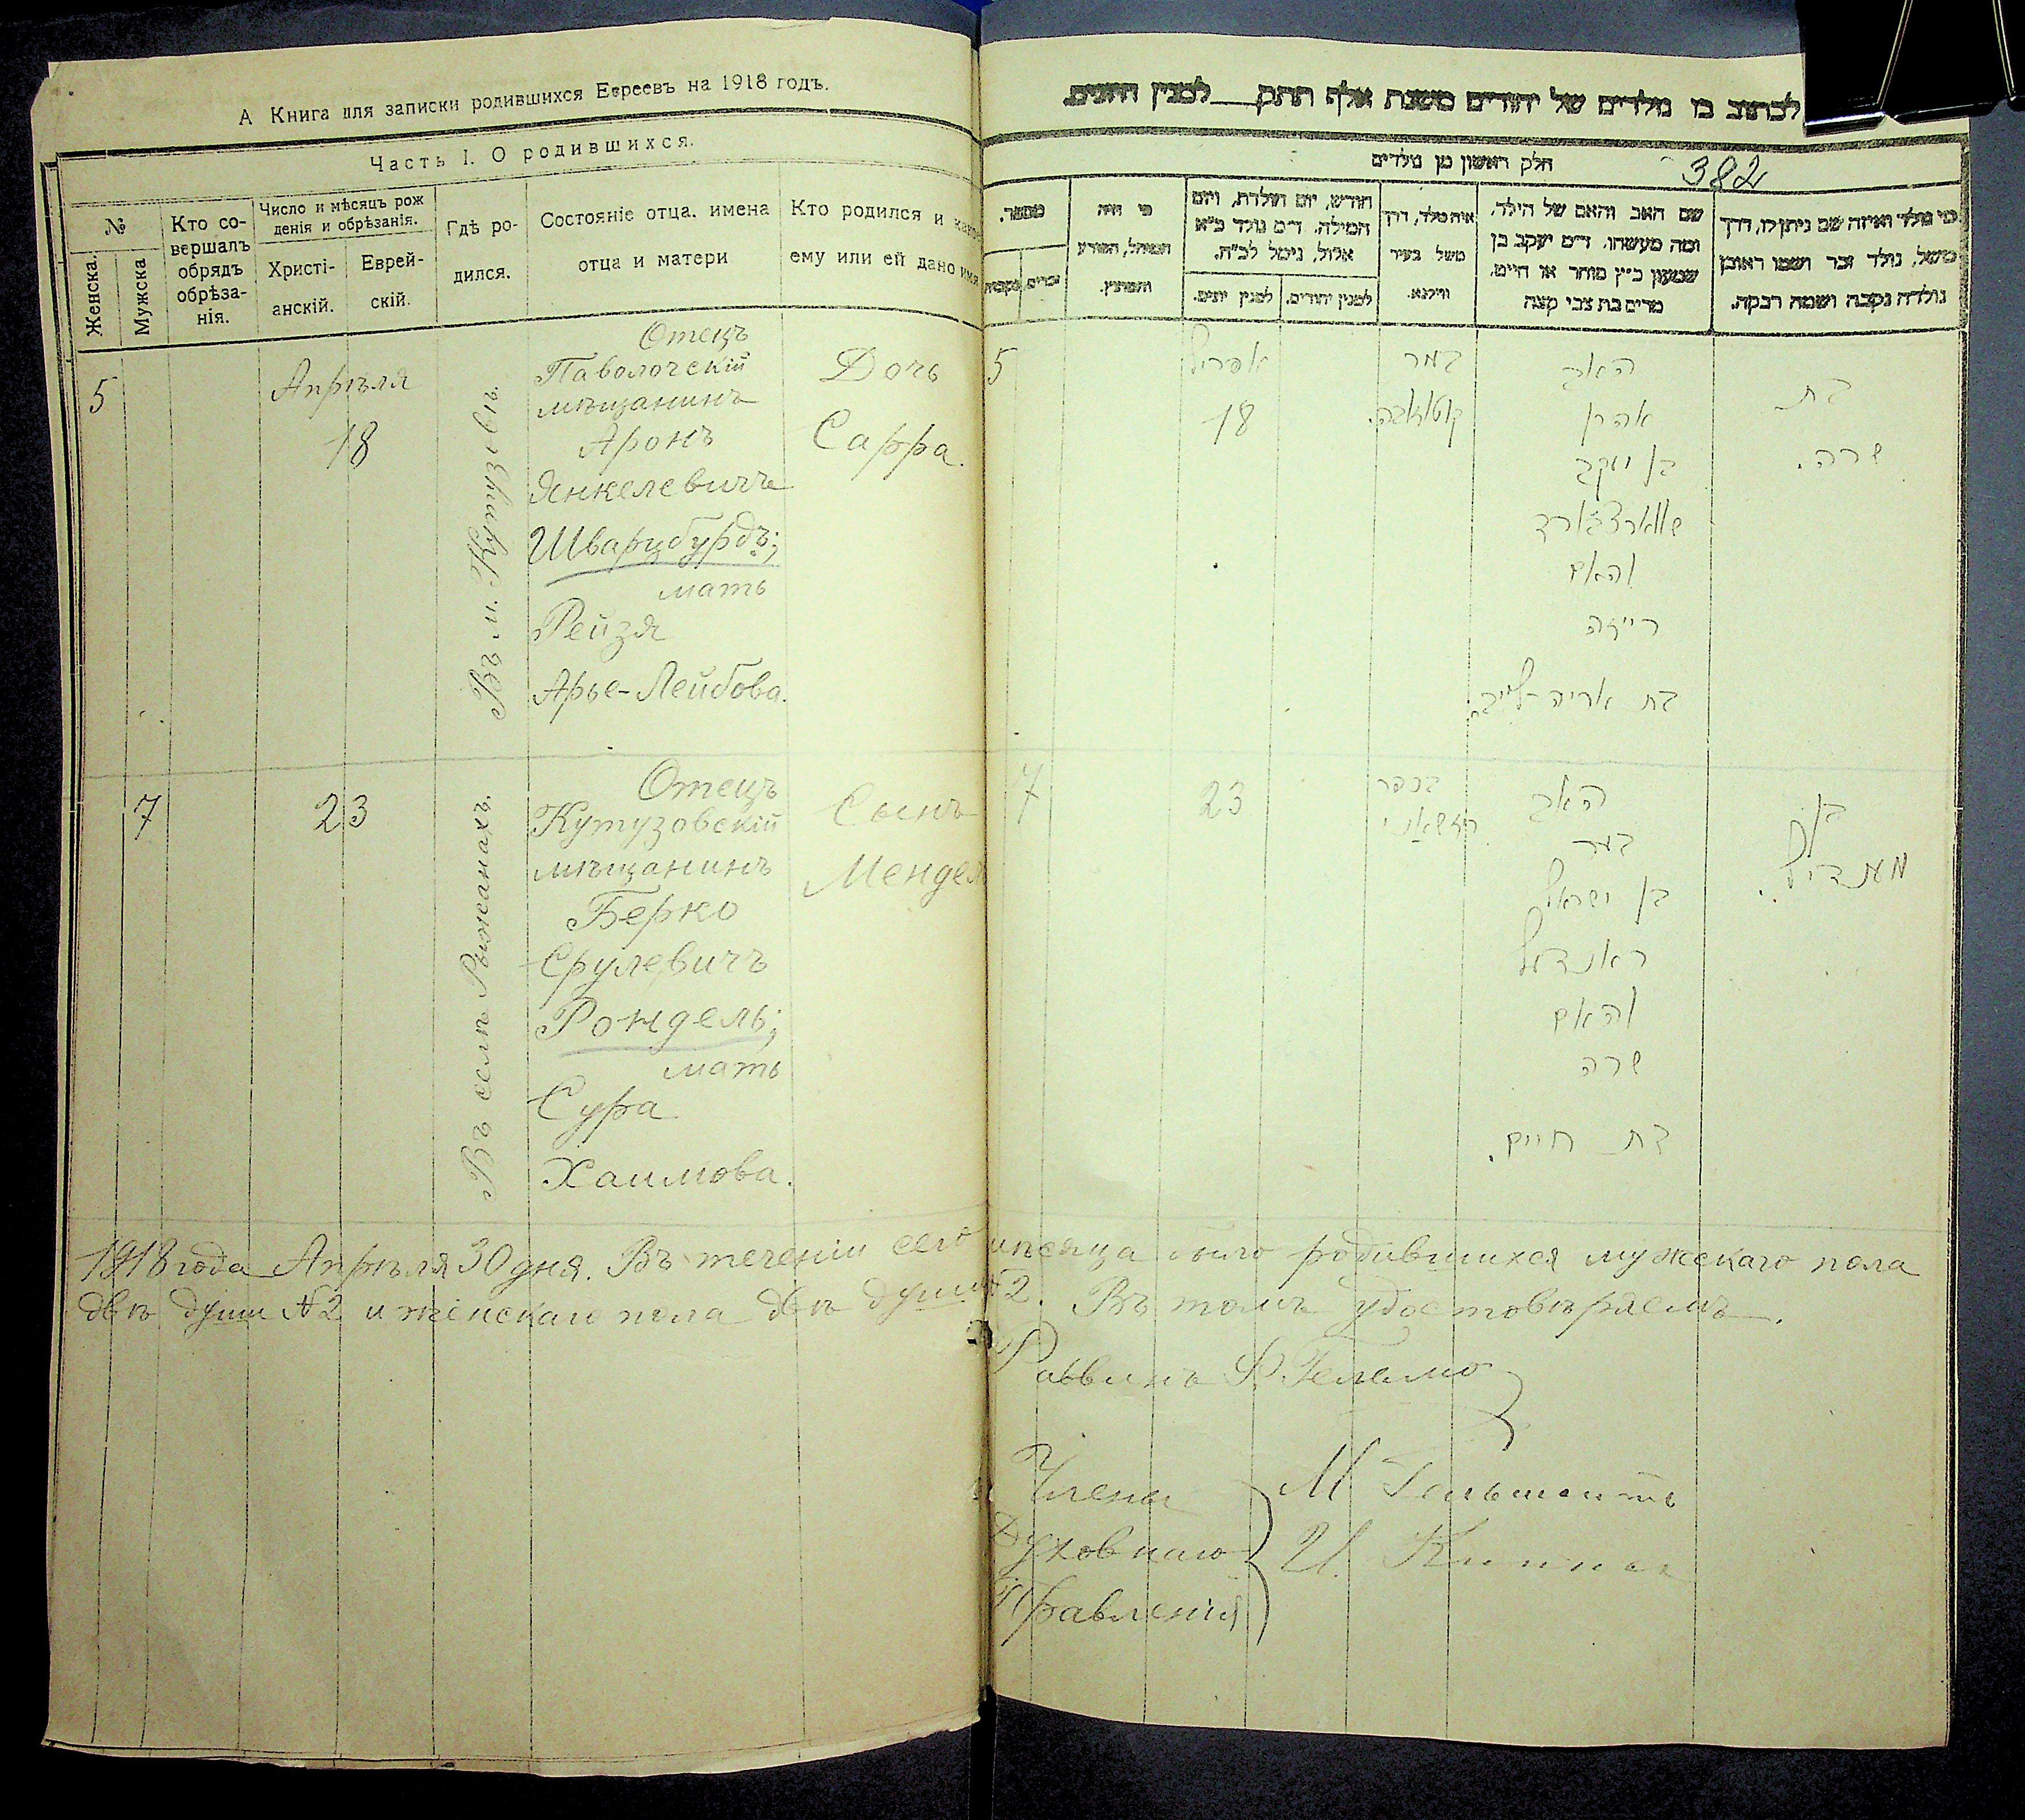 А Книга для записки родившихся Евреевъ на 1918 годъ.
Часть I. О родившихся.
№
Женска.
Мужска
Кто со-
вершалъ
обрядъ
обрѣза-
нія.
Число и мѣсяцъ рож
денія и обрѣзанія.
Христі-
анскій.
Еврей-
скій.
Гдѣ ро-
дился.
Состояніе отца. имена
отца и матери
Кто родился и какое
ему или ей дано имя
5
Апрѣля
18
Въ м. Кутузовѣ.
Отецъ
Паволочскій
мѣщанинъ
Аронъ
Янкелевичъ
Шварцбурдъ;
мать
Рейзя
Арье-Лейбова.
Дочь
Сарра.
7
23
Въ селѣ Рыжанахъ.
Отецъ
Кутузовскій
мѣщанинъ
Берко
Срулевичъ
Рондель;
мать
Сура
Хаимова.
Сынъ
Мендель
לכתוב בו נולדים של יהודים משנת אלף תתק לمنין היונים.
חלק ראשון מן נולדים
382
מי נולד ואיזה שם ניתן לו, דרך
משל, נולד זכר ושמו ראובן
נולדה נקבה ושמה רבקה.
שם האב והאם של הילד,
ומה מעשהו. ד״מ יעקב בן
שמעון כ״ץ סוחר או חייט,
מרים בת צבי קצה
איה נולד, דרך
משל בעיר
ווילנא.
חודש, יום הולדת, ויום
המילה. ד״מ נולד כ״א
אלול, נימול לכ״ח.
למנין יהודים.
למנין יונים.
מי היה
המוהל, הפורע
והמוצץ.
מספר.
זכרים.
נקבות
בת
שרה.
האב
אהרן
בן יעקב
שווארצבורד
והאם
רייזה
בת אריה-לייב.
במר
קוטוזובה.
אפריל
18
5
בן
מענדיל.
האב
בער
בן ישראל
ראנדעל
והאם
שרה
בת חיים.
בכפר
23
7
1918 года Апрѣля 30 дня. Въ теченіи сего мѣсяца было родившихся мужскаго пола
двѣ души № 2 и женскаго пола двѣ души № 2. Въ томъ удостовѣряемъ.
Раввинъ
Члены
Духовнаго
Правленія
М.
И.